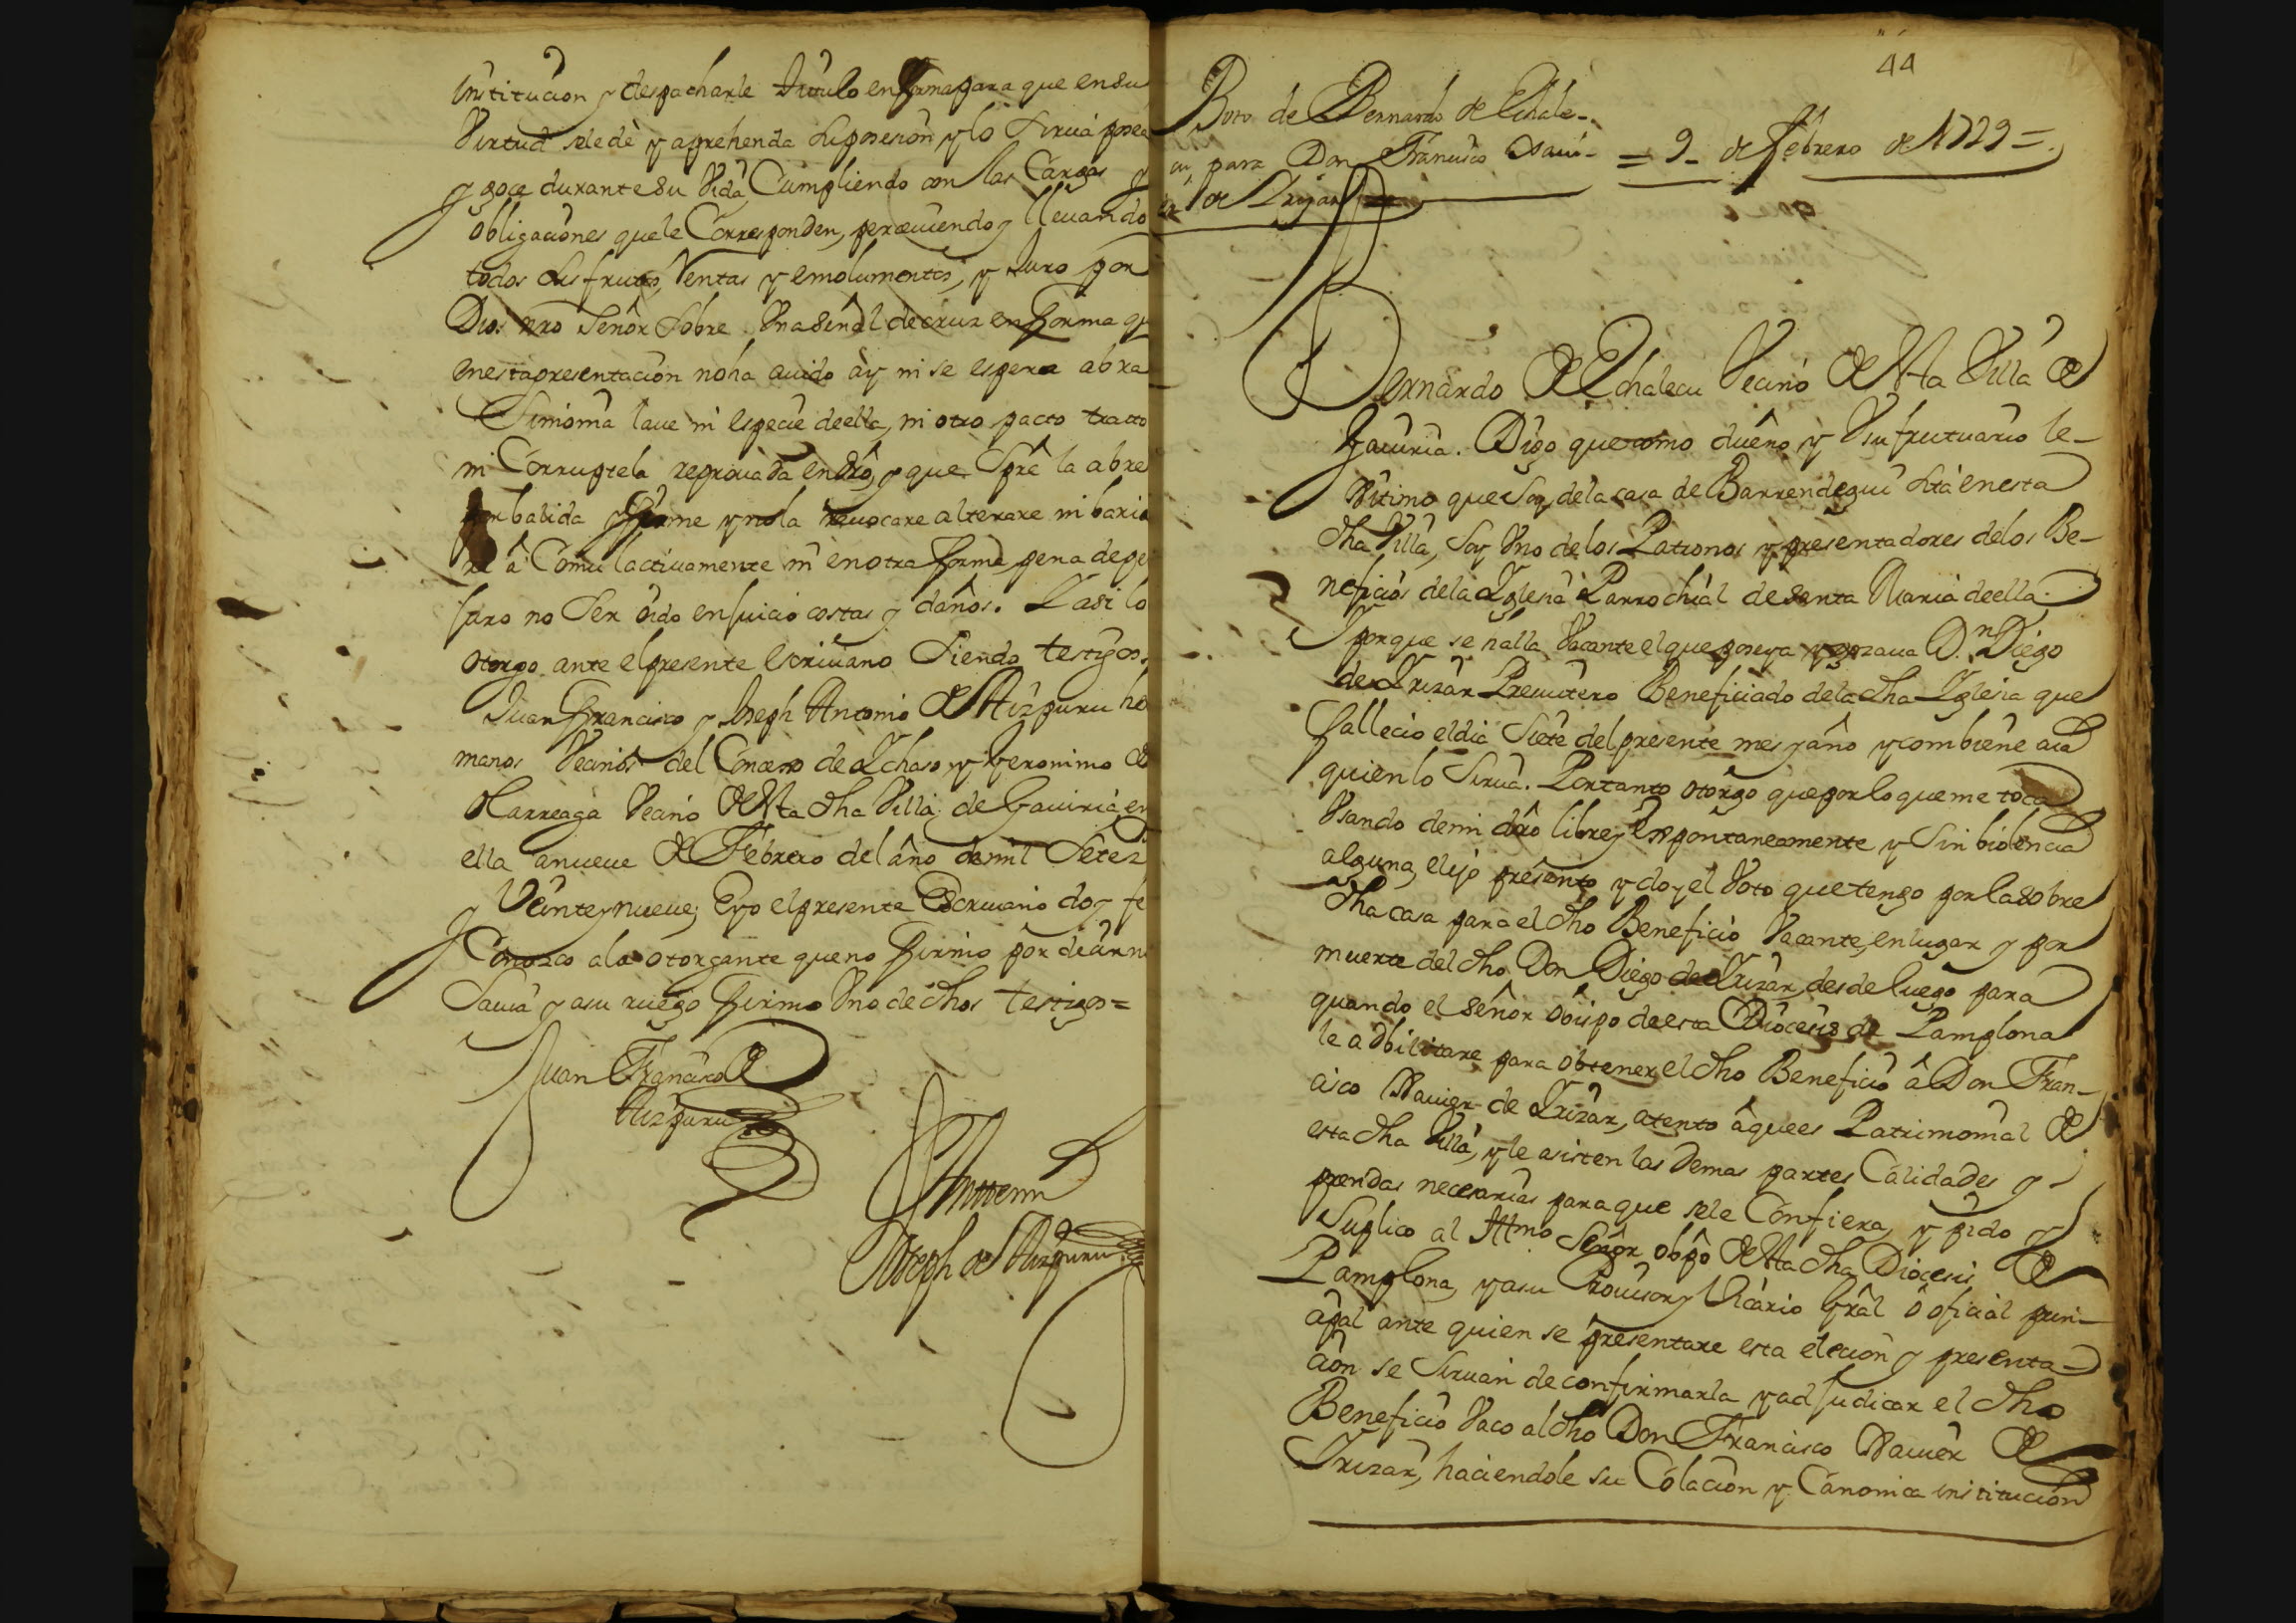 institucion y despacharle titulo en forma para que en su
Virtud se le dè y aprehenda su posesion y lo sirua posea
y goce durante su Vida Cumpliendo con las Cargas y
obligaciones que le Corresponden, perciuiendo y lleuando
todos sus frutos, Rentas y emolumentos, y Juro por
Dios nrô Señor sobre Vna señal de cruz en forma qu
en esta presentacion no ha auido ày ni se espera abra
Simonia laue ni especie de ella, ni otro pacto tracto
ni Corruptela reprouada en drô, y que Sprê la abre
por balida y firme y no la reuocare alterare ni baria
re â Comulactiuamente ni en otra forma, pena de pe
juro no Ser oido en juicio costas y daños. Y asi lo
otorgo ante el presente escriuano Siendo testigos
Juan Francisco y Joseph Antonio de Aizpuru her
manos Vecinos del Concejo de Ichaso y Geronimo de
Olarreaga Vecino de esta dha Villa de Gauiria, en
ella a nueue de Febrero del año de mil Setez
y Veinte y nueue; E yo el presente Escriuano doy fe
Conozco al otorgante que no firmo por decir no
Sauia y a su ruego firmo Vno de dhos testigos =
Juan Francisco de
Aizpuru
Ante mi
Joseph de Aizpuru
44
Boto de Bernardo de Echale-
cu, para Don Francisco Xaui-
er de Irizar
= 9 de febrero de 1729 =
Bernardo de Echalecu Vecino de esta Villa de
Gauiria. Digo que como dueño y Vsufrutuario le-
xitimo que Soy de la casa de Barrendegui sita en esta
dha Villa, Soy Vno de los Patronos y presentadores de los Be-
neficios de la Yglesia Parrochial de santa Maria de ella.
Y porque se halla Vacante el que poseya y gozaua D.n Diego
de Irizar Presuitero Beneficiado de la dha Yglesia que
fallecio el dia Siete del presente mes y año y combiene aia
quien lo Sirua. Por tanto otorgo que por lo que me toca
Vsando de mi drô libre y espontaneamente y Sin biolencia
alguna, elijo presento y doy el Voto que tengo por la sobre
dha casa para el dho Beneficio Vacante, en lugar y por
muerte del dho Don Diego de Irizar, desde luego para
quando el señor obispo de esta Diocesis de Pamplona
le adbilitare para obtener el dho Beneficio â Don Fran-
cisco Xauier de Irizar, atento â que es Patrimonial de
esta dha Villa, y le asisten las demas partes Calidades y
prendas necesarias para que se le Confiera, y pido y
Suplico al Illmo Señor obpô de esta dha Diocesis de
Pamplona, y a su Prouisor y Vicario Grâl ô oficial prin-
cipal ante quien se presentare esta elecion y presenta-
cion se Siruan de confirmarla y adjudicar el dho
Beneficio Vaco al dho Don Francisco Xauier de
Irizar, haciendole su Colacion y Canonica institucion